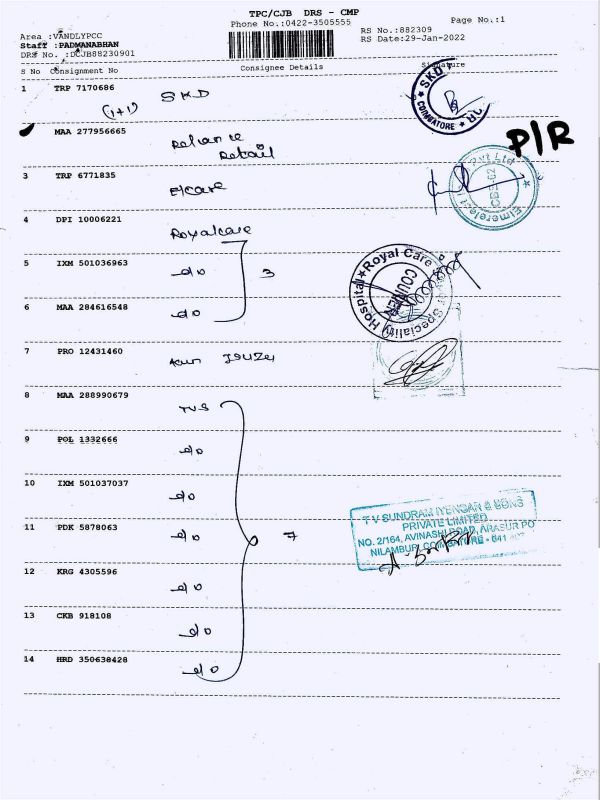 TPC/CJB DRS - CMP
Phone No.:0422-3505555
Page No.:1
Area :VANDLYPCC
Staff :PADMANABHAN
DRS No. :DCJB88230901
RS No.:882309
RS Date:29-Jan-2022
S No Consignment No Consignee Details Signature
1 TRP 7170686 SKD
(1+1)
SKD
COIMBATORE
MAA 277956665 Reliance
Retail
P/R
3 TRP 6771835 Elcare
4 DPI 10006221 Royalcare
5 IXM 501036963 do
3
Royal Care Speciality Hospital
6 MAA 284616548 do
7 PRO 12431460 Isuzu
8 MAA 288990679 TVS
9 POL 1332666 do
10 IXM 501037037 do
T V SUNDRAM IYENGAR & SONS
PRIVATE LIMITED
NO. 2/164, AVINASHI ROAD, ARASUR PO
NILAMBUR, COIMBATORE - 641 407
11 PDK 5878063 do
7
12 KRG 4305596 do
13 CKB 918108 do
14 HRD 350638428 do